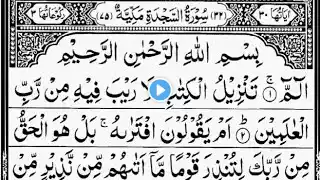 اٰيَاتُهَا ٣٠ (٣٢) سُوْرَةُ السَّجْدَةِ مَكِّيَّةٌ (٧٥) رُكُوْعَاتُهَا ٣
بِسْمِ اللّٰهِ الرَّحْمٰنِ الرَّحِيْمِ
الٓمّٓ ۚ ﴿١﴾ تَنْزِيْلُ الْكِتٰبِ لَا رَيْبَ فِيْهِ مِنْ رَّبِّ
الْعٰلَمِيْنَ ﴿٢﴾ اَمْ يَقُوْلُوْنَ افْتَرٰىهُ ۚ بَلْ هُوَ الْحَقُّ
مِنْ رَّبِّكَ لِتُنْذِرَ قَوْمًا مَّاۤ اَتٰىهُمْ مِّنْ نَّذِيْرٍ مِّنْ